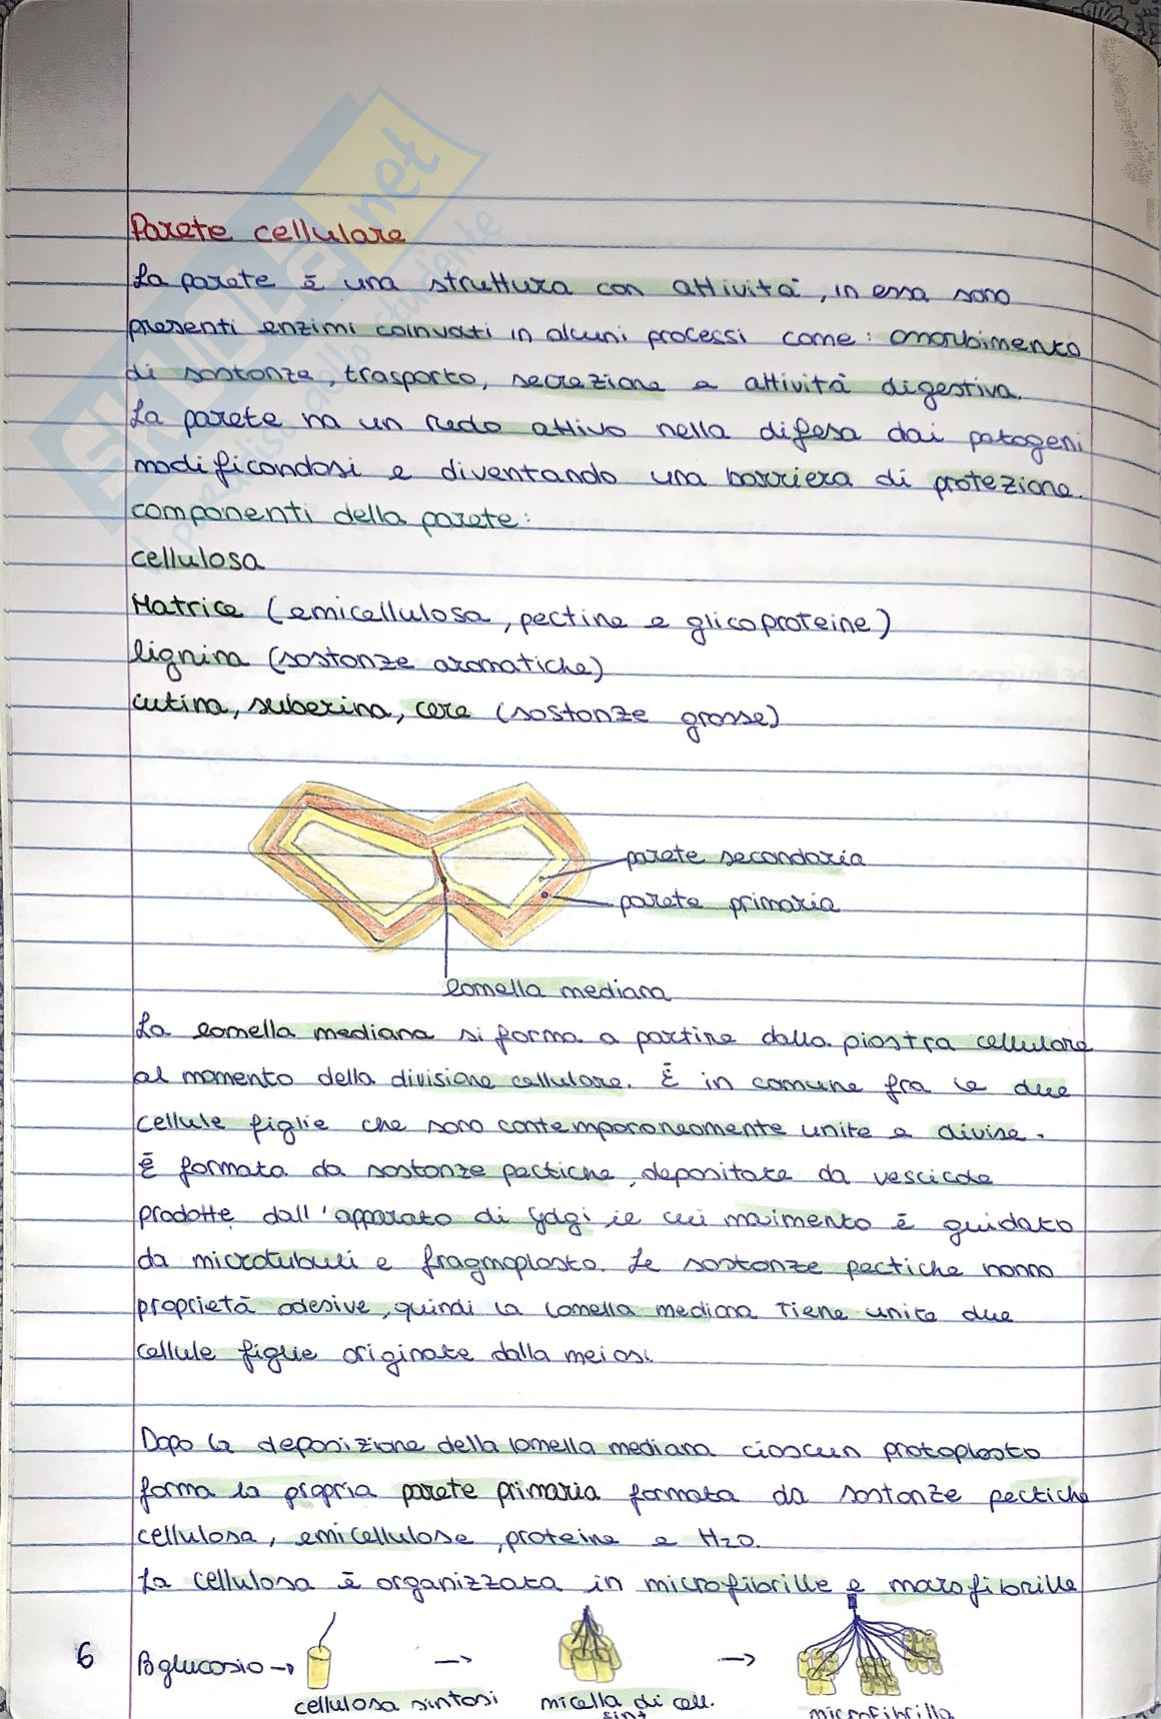 SKUOLA.net
il paradiso dello studente
Parete cellulare
La parete è una struttura con attività, in essa sono
presenti enzimi coinvolti in alcuni processi come: assorbimento
di sostanze, trasporto, secrezione e attività digestiva.
La parete ha un ruolo attivo nella difesa dai patogeni
modificandosi e diventando una barriera di protezione.
componenti della parete:
cellulosa
Matrice (emicellulosa, pectine e glicoproteine)
lignina (sostanze aromatiche)
cutina, suberina, cere (sostanze grasse)
parete secondaria
parete primaria
lamella mediana
La lamella mediana si forma a partire dalla piastra cellulare
al momento della divisione cellulare. È in comune fra le due
cellule figlie che sono contemporaneamente unite e divise.
È formata da sostanze pectiche, depositate da vescicole
prodotte dall'apparato di Golgi, il cui movimento è guidato
da microtubuli e fragmoplasto. Le sostanze pectiche hanno
proprietà adesive, quindi la lamella mediana tiene unite due
cellule figlie originate dalla meiosi.
Dopo la deposizione della lamella mediana ciascun protoplasto
forma la propria parete primaria formata da sostanze pectiche
cellulosa, emicellulose, proteine e H2O.
La cellulosa è organizzata in microfibrille e macrofibrille
6 β glucosio → → →
cellulosa sintasi micella di cell. microfibrilla